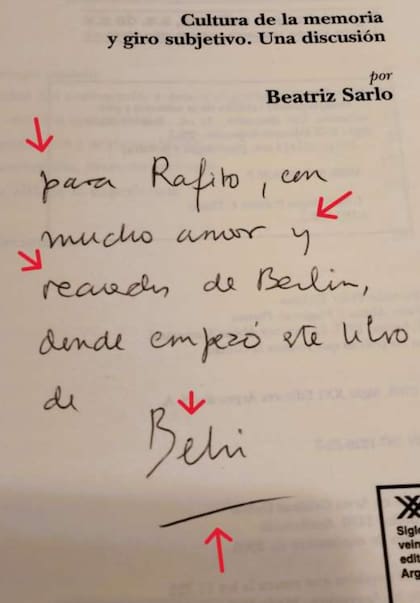 Cultura de la memoria
y giro subjetivo. Una discusión
por
Beatriz Sarlo
para Rafito, con
mucho amor y
recuerdos de Berlin,
donde empezó este libro
de
Beti
Siglo
vein
edit
Arg